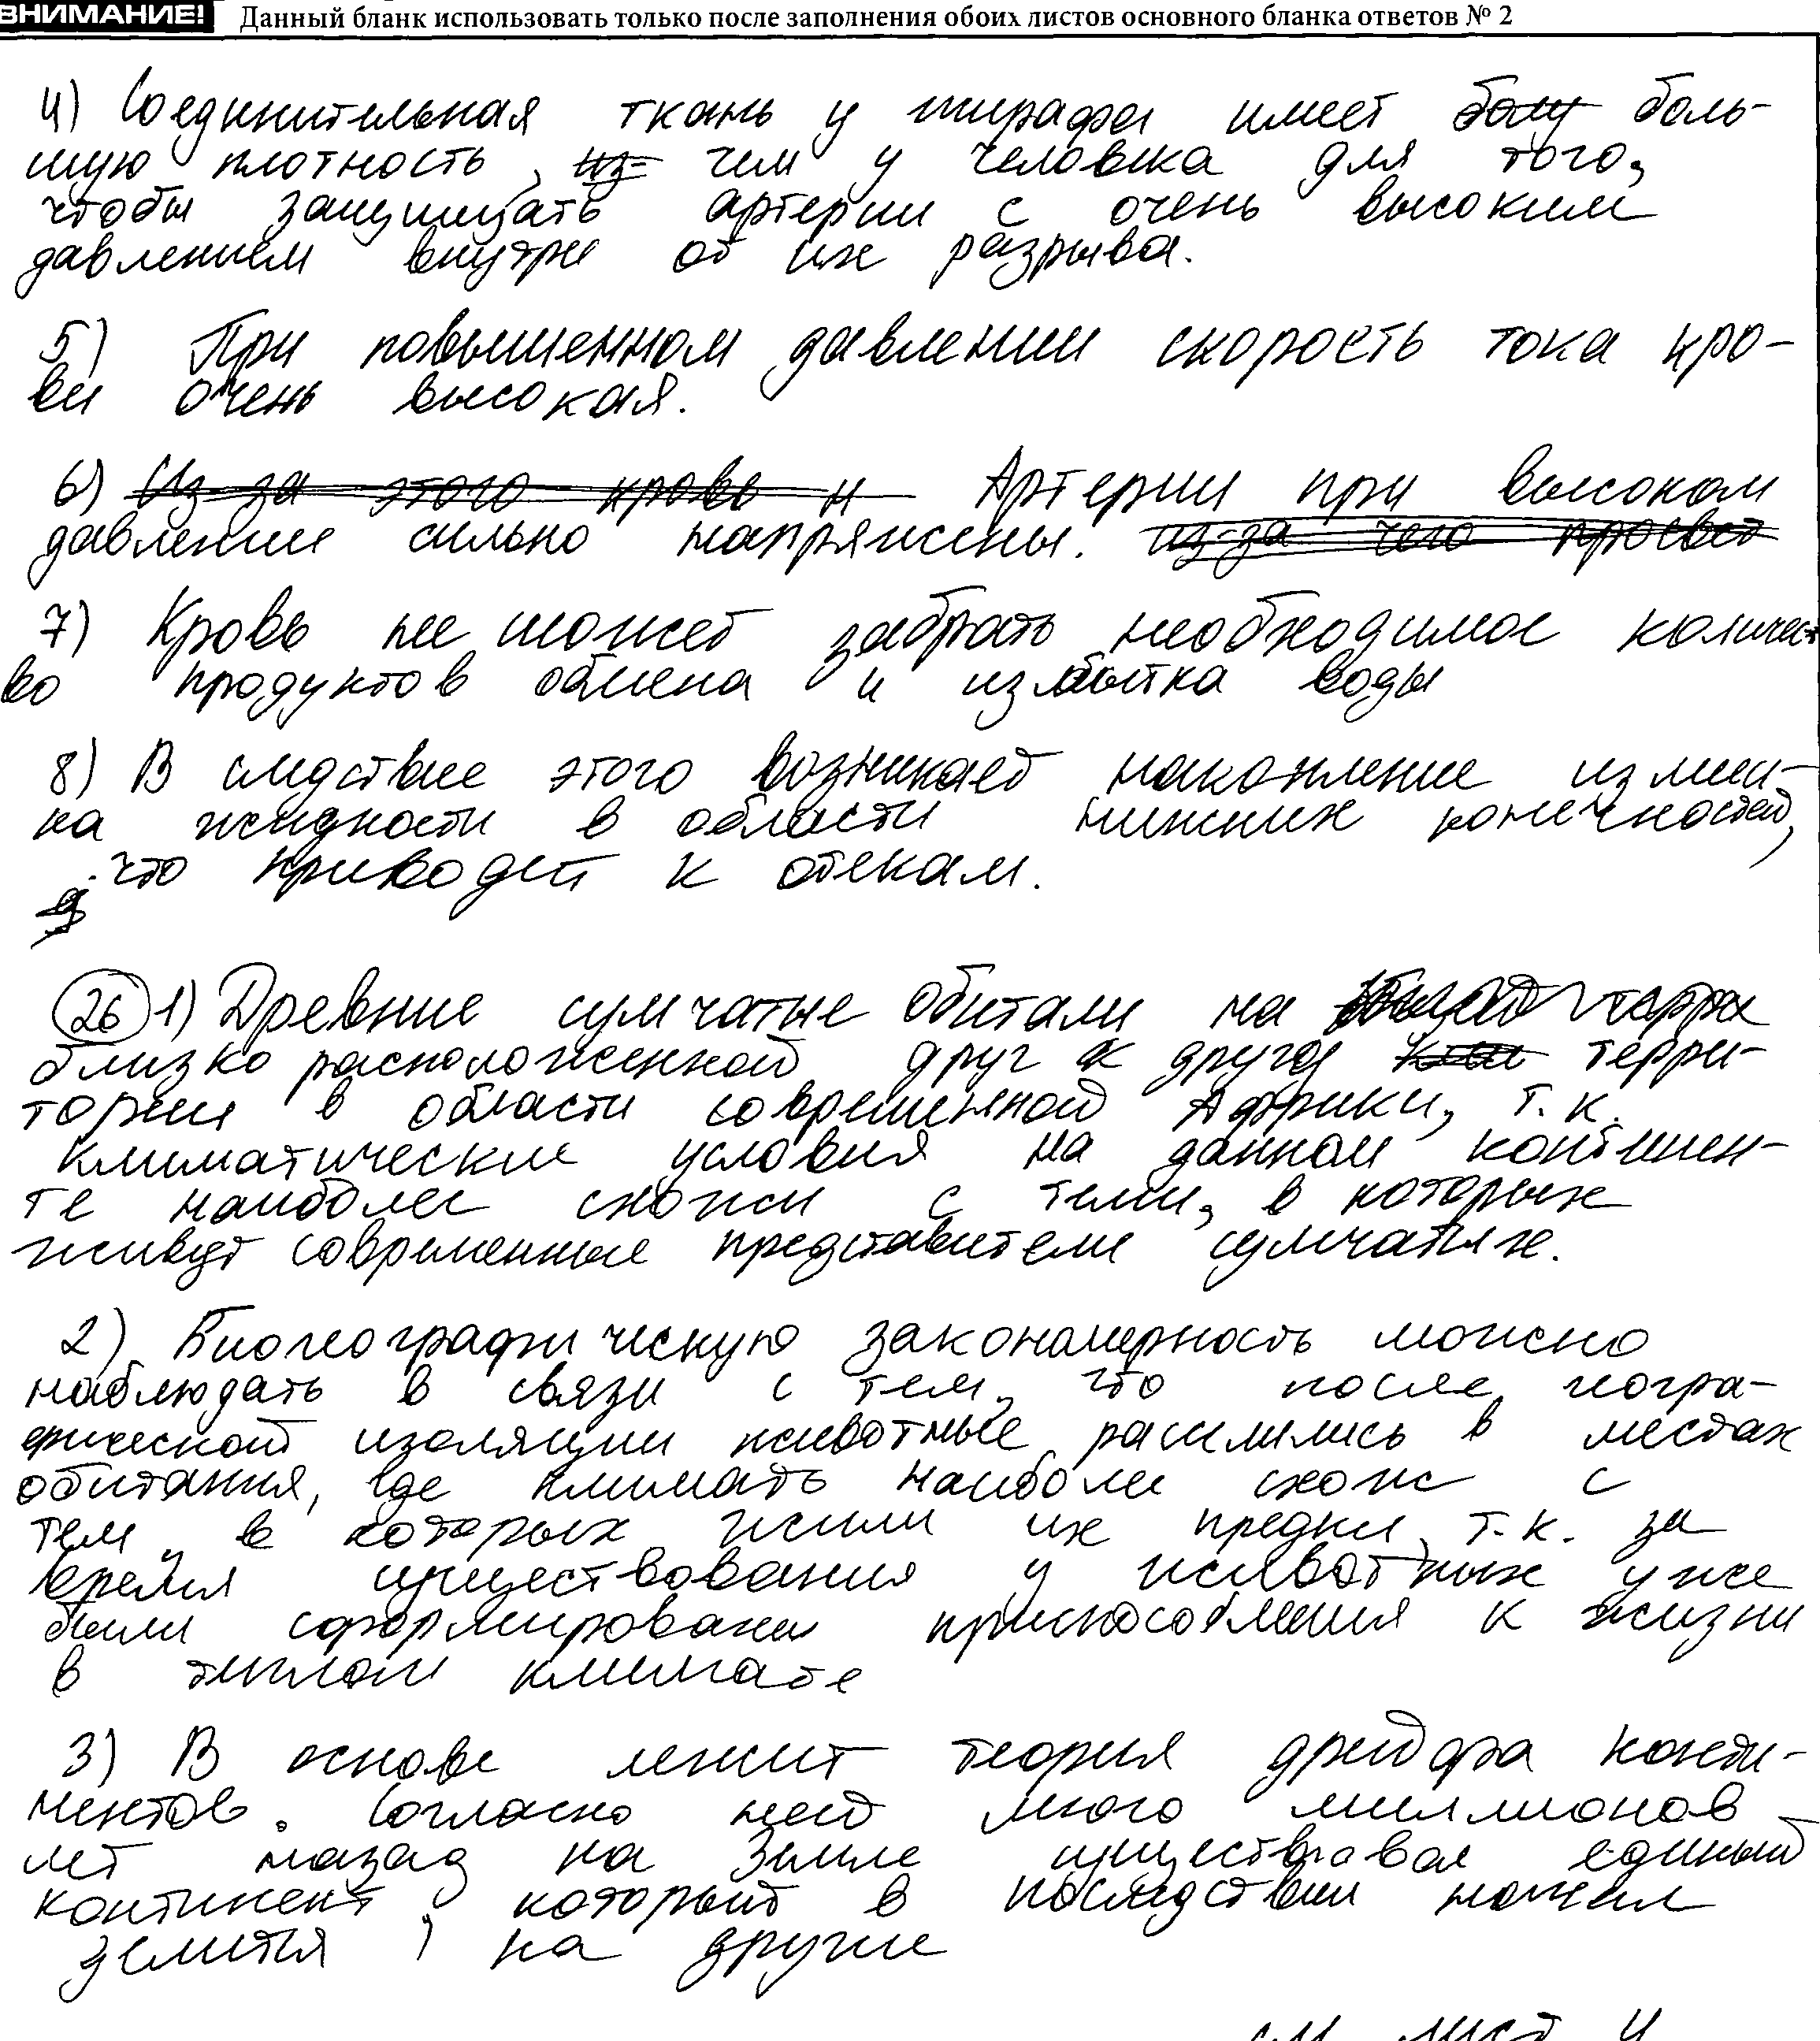 ВНИМАНИЕ! Данный бланк использовать только после заполнения обоих листов основного бланка ответов № 2
4) Соединительная ткань у жирафы имеет болу боль-
шую плотность, из- чем у человека для того,
чтобы защищать артерии с очень высоким
давлением внутри от их разрыва.
5) При повышенном давлении скорость тока кро-
ви очень высокая.
6) Из-за этого кровь н Артерии при высоком
давлении сильно напряжены. из-за чего просвет
7) Кровь не может забрать необходимое количест
во продуктов обмена и избытка воды
8) В следствие этого возникает накопление излиш-
ка жидкости в области нижних конечностей,
что приводет к отекам.
26 1) Древние сумчатые обитали на терри
близко расположенной друг к другу терри-
тории в области современной Африки, т.к.
климатические условия на данном континен-
те наиболее схожи с теми, в которых
живут современные представители сумчатых.
2) Биогеографическую закономерность можно
наблюдать в связи с тем, что после геогра-
фической изоляции животные расселились в местах
обитания, где климать наиболее схож с
тем, в которых жили их предки, т.к. за
время существования у животных уже
были сформированы приспособления к жизни
в теплом климате
3) В основе лежит теория дрейфа конти-
нентов. Согласно ней много миллионов
лет назад на Земле существовал единый
континент, который в последствии начал
делится, на другие
см лист 4